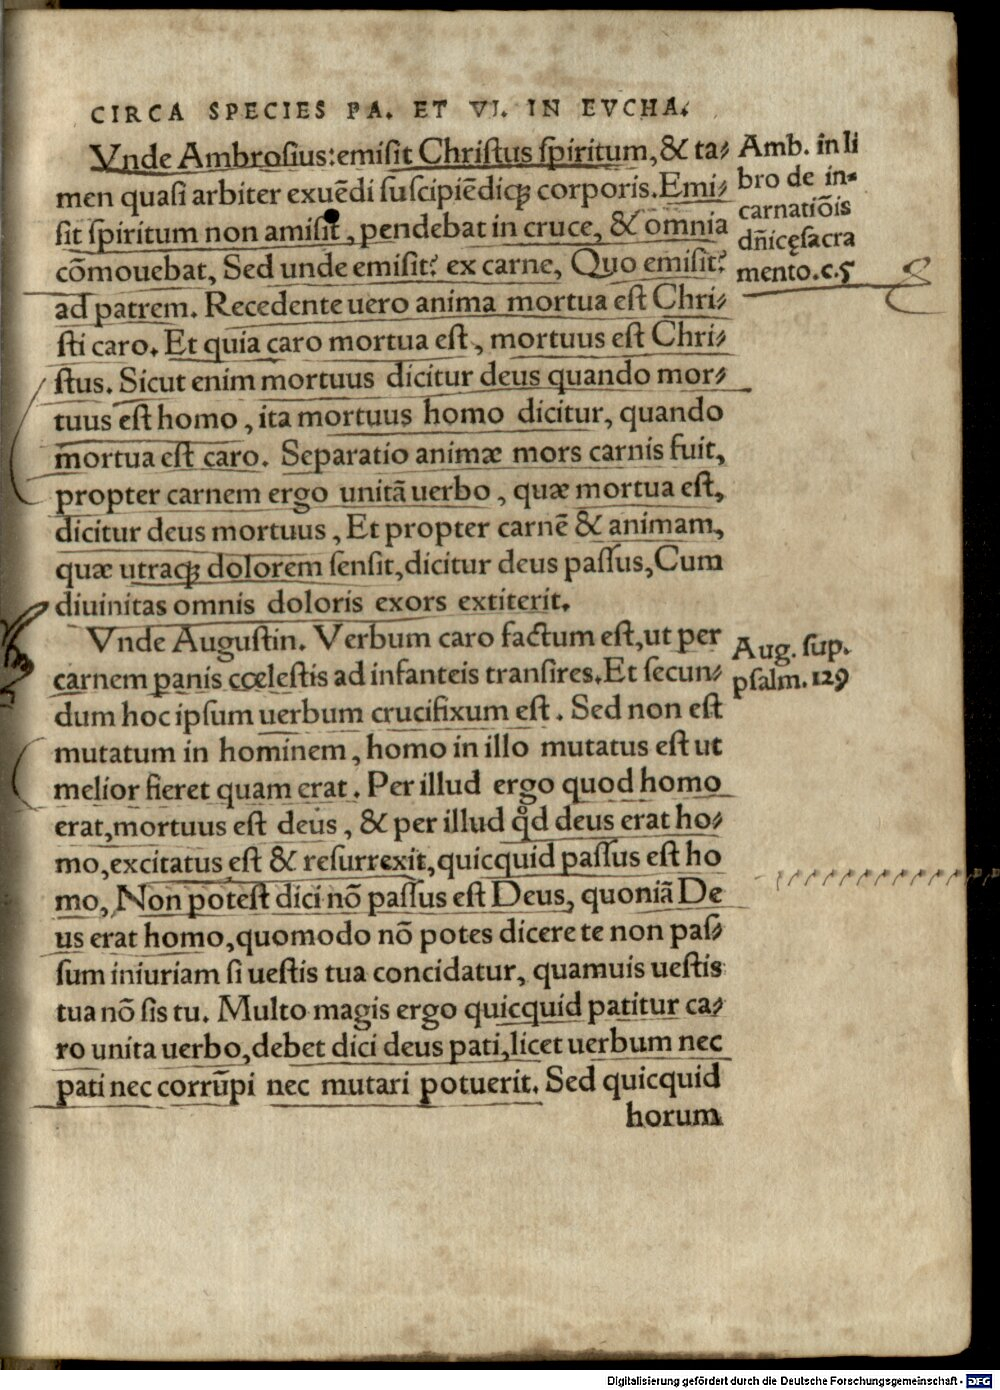 CIRCA SPECIES PA. ET VI. IN EVCHA.
Vnde Ambrosius: emisit Christus spiritum, & ta⸗
men quasi arbiter exuēdi suscipiēdiqꝫ corporis. Emi⸗
sit spiritum non amisit, pendebat in cruce, & omnia
cōmouebat, Sed unde emisit? ex carne, Quo emisit?
ad patrem. Recedente uero anima mortua est Chri⸗
sti caro. Et quia caro mortua est, mortuus est Chri⸗
stus. Sicut enim mortuus dicitur deus quando mor⸗
tuus est homo, ita mortuus homo dicitur, quando
mortua est caro. Separatio animæ mors carnis fuit,
propter carnem ergo unitā uerbo, quæ mortua est,
dicitur deus mortuus, Et propter carnē & animam,
quæ utraqꝫ dolorem sensit, dicitur deus passus, Cum
diuinitas omnis doloris exors extiterit.
Vnde Augustin. Verbum caro factum est, ut per
carnem panis cœlestis ad infanteis transires. Et secun⸗
dum hoc ipsum uerbum crucifixum est. Sed non est
mutatum in hominem, homo in illo mutatus est ut
melior fieret quam erat. Per illud ergo quod homo
erat, mortuus est deus, & per illud qd̊ deus erat ho⸗
mo, excitatus est & resurrexit, quicquid passus est ho
mo, Non potest dici nō passus est Deus, quoniā De
us erat homo, quomodo nō potes dicere te non pas⸗
sum iniuriam si uestis tua concidatur, quamuis uestis
tua nō sis tu. Multo magis ergo quicquid patitur ca⸗
ro unita uerbo, debet dici deus pati, licet uerbum nec
pati nec corrūpi nec mutari potuerit. Sed quicquid
horum
Amb. in li
bro de in⸗
carnatiōis
dn̄icę sacra
mento. c. 5
Aug. sup.
psalm. 129
Digitalisierung gefördert durch die Deutsche Forschungsgemeinschaft - DFG